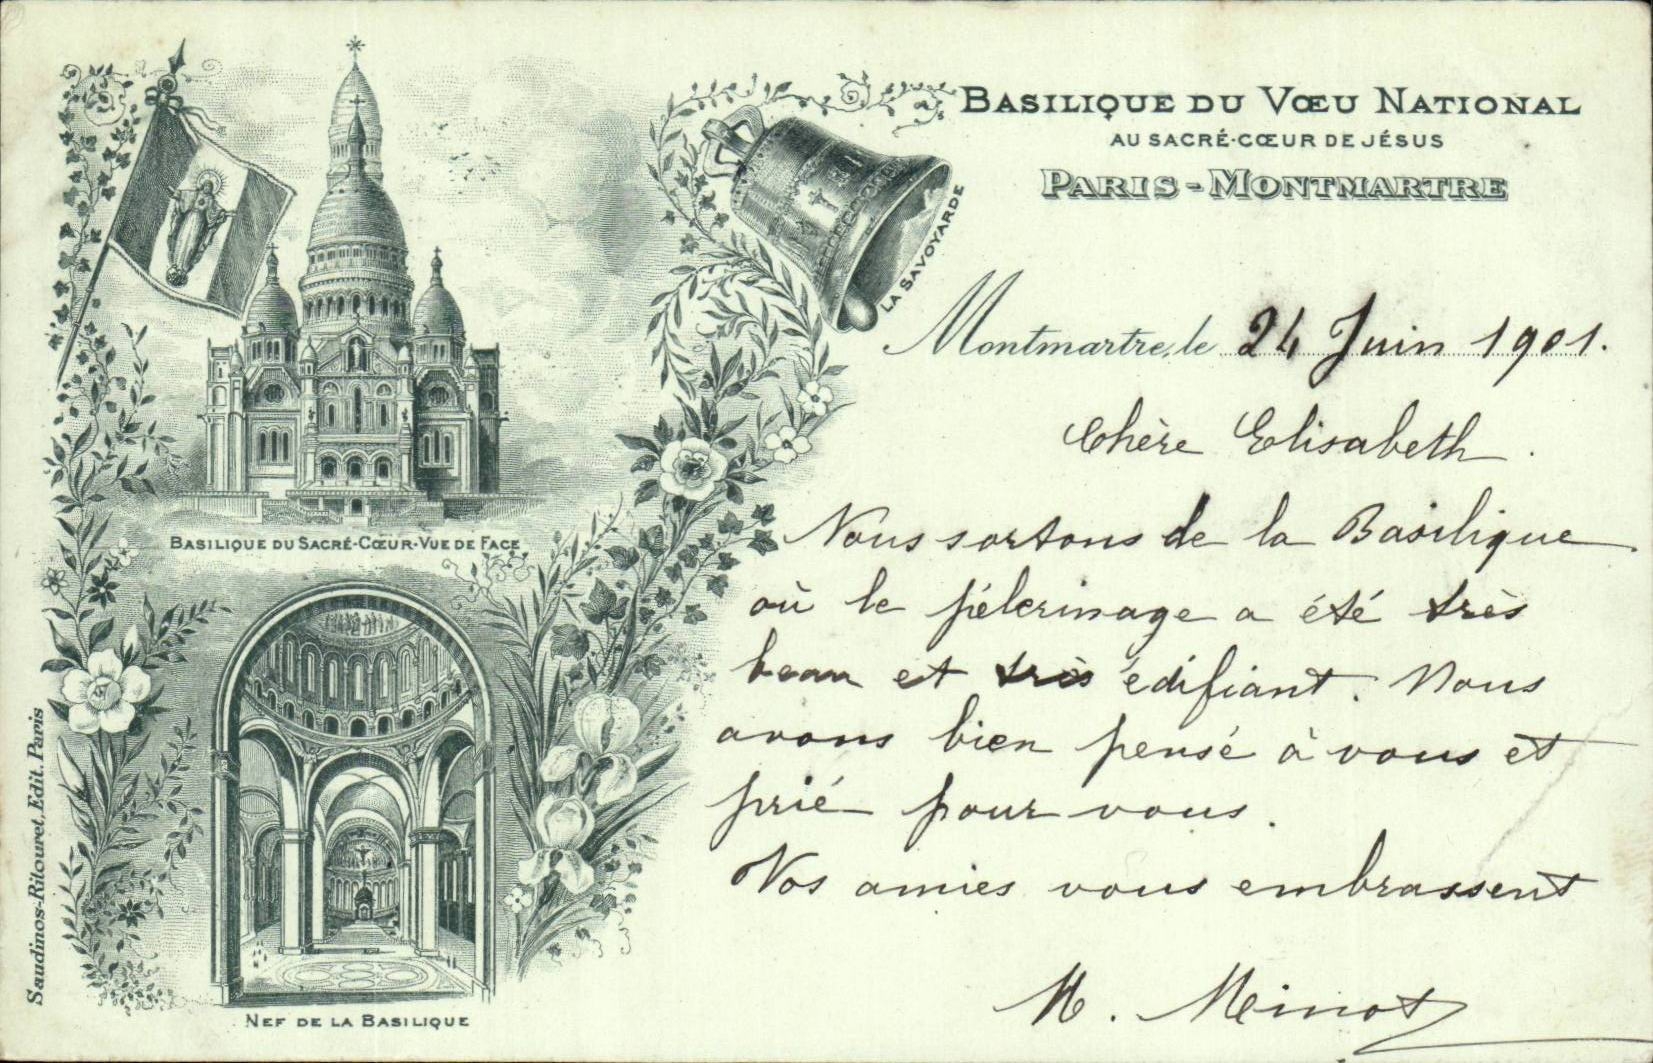 BASILIQUE DU VŒU NATIONAL
AU SACRÉ-CŒUR DE JÉSUS
PARIS-MONTMARTRE
LA SAVOYARDE
Montmartre, le 24 Juin 1901.
Chère Elisabeth.
Nous sortons de la Basilique
où le pélerinage a été très
beau et très édifiant. Nous
avons bien pensé à vous et
prié pour vous.
Nos amies vous embrassent
M. Meinot
BASILIQUE DU SACRÉ-CŒUR-VUE DE FACE
NEF DE LA BASILIQUE
Saudinos-Ritouret, Edit. Paris